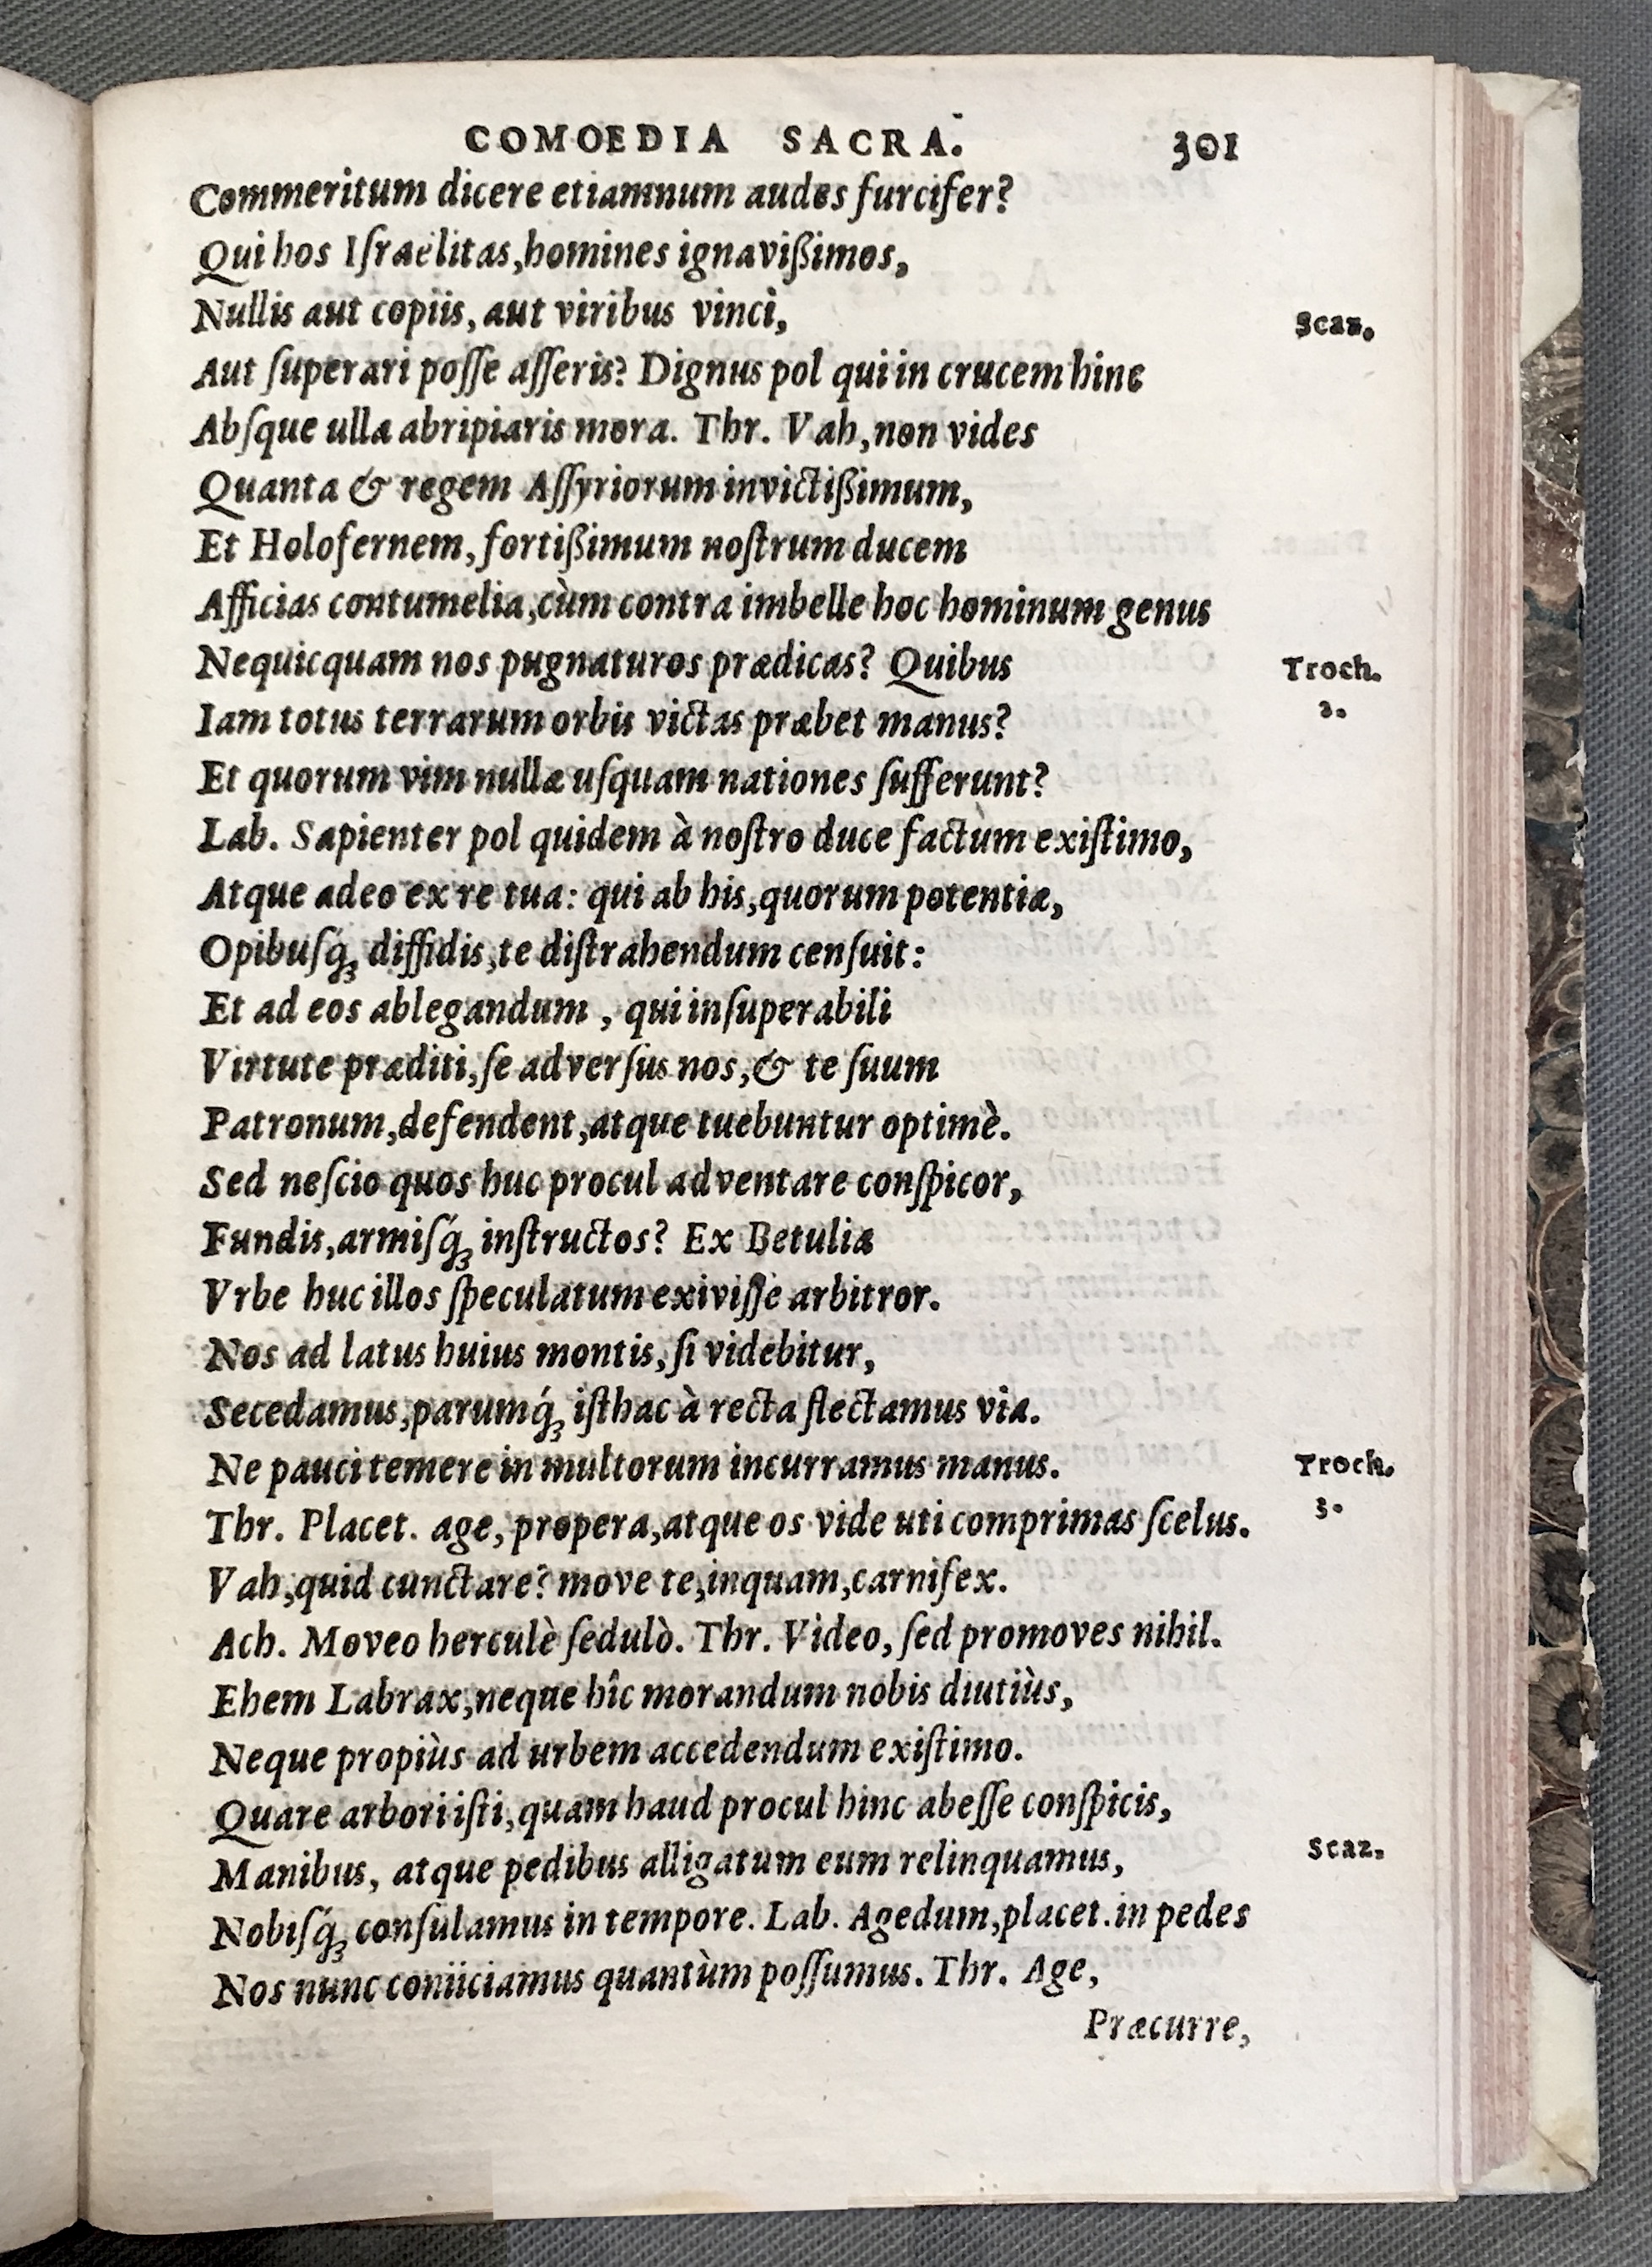 COMOEDIA SACRA. 301
Commeritum dicere etiamnum audes furcifer?
Qui hos Iſraëlitas, homines ignavißimos,
Nullis aut copiis, aut viribus vinci, Scaz.
Aut ſuperari poſſe aſſeris? Dignus pol qui in crucem hinc
Abſque ulla abripiaris mora. Thr. Vah, non vides
Quanta & regem Aſſyriorum invictißimum,
Et Holofernem, fortißimum noſtrum ducem
Afficias contumelia, cùm contra imbelle hoc hominum genus
Nequicquam nos pugnaturos prædicas? Quibus Troch.
Iam totus terrarum orbis victas præbet manus? 3.
Et quorum vim nullæ uſquam nationes ſufferunt?
Lab. Sapienter pol quidem à noſtro duce factùm exiſtimo,
Atque adeo ex re tua: qui ab his, quorum potentiæ,
Opibuſq́ꝫ diffidis, te diſtrahendum cenſuit:
Et ad eos ablegandum , qui inſuperabili
Virtute præditi, ſe adverſus nos, & te ſuum
Patronum, defendent, atque tuebuntur optimè.
Sed neſcio quos huc procul adventare conſpicor,
Fundis, armiſq́ꝫ inſtructos? Ex Betulia
Vrbe huc illos ſpeculatum exiviſſe arbitror.
Nos ad latus huius montis, ſi videbitur,
Secedamus, parumq́ꝫ iſthac à recta flectamus via.
Ne pauci temere in multorum incurramus manus. Troch.
Thr. Placet. age, propera, atque os vide uti comprimas ſcelus. 3.
Vah, quid cunctare? move te, inquam, carnifex.
Ach. Moveo herculè ſedulò. Thr. Video, ſed promoves nihil.
Ehem Labrax, neque hîc morandum nobis diutiùs,
Neque propiùs ad urbem accedendum exiſtimo.
Quare arbori iſti, quam haud procul hinc abeſſe conſpicis,
Manibus, atque pedibus alligatum eum relinquamus, Scaz.
Nobiſq́ꝫ conſulamus in tempore. Lab. Agedum, placet. in pedes
Nos nunc coniiciamus quantùm poſſumus. Thr. Age,
Præcurre,